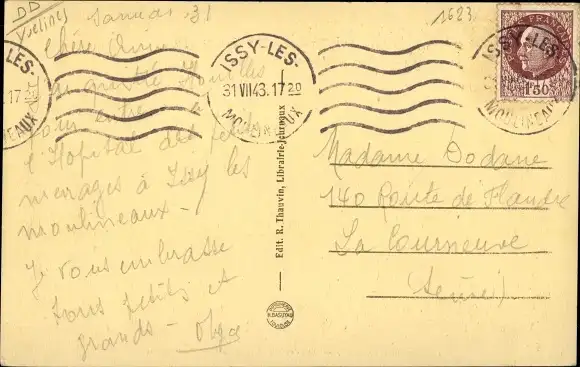 DD
Yvelines
Samedi 31
1623
Chère
quitté Houilles
pour entrer
l'Hopital des petits
menages à Issy les
moulineaux -
Je vous embrasse
tous petits et
grands -
Olga
ISSY-LES-
MOULINEAUX
ISSY-LES-
31 VII 43. 17 20
MOULINEAUX
ISSY-LES-
MOULINEAUX
FRANÇAISE
1F50
Edit. R. Thauvin, Librairie-Journaux
Madame Dodane
140 Route de Flandre
La Courneuve
(Seine)